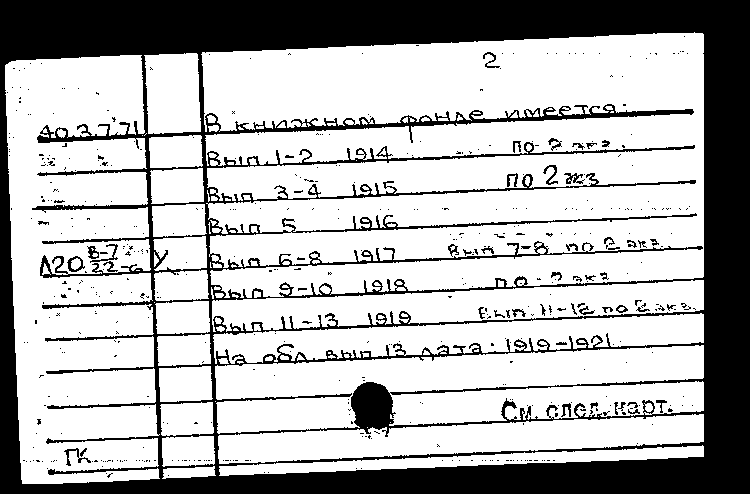 2
40.3.7.71 В книжном фонде имеется:
Вып. 1-2 1914 по 2 экз.
Вып 3-4 1915 по 2 экз
Вып 5 1916
Л20 В-7/22-6 У Вып 6-8 1917 Вып 7-8 по 2 экз.
Вып 9-10 1918 по 2 экз
Вып. 11-13 1919 Вып. 11-12 по 2 экз.
На обл. вып 13 дата: 1919-1921
См. след. карт.
ГК